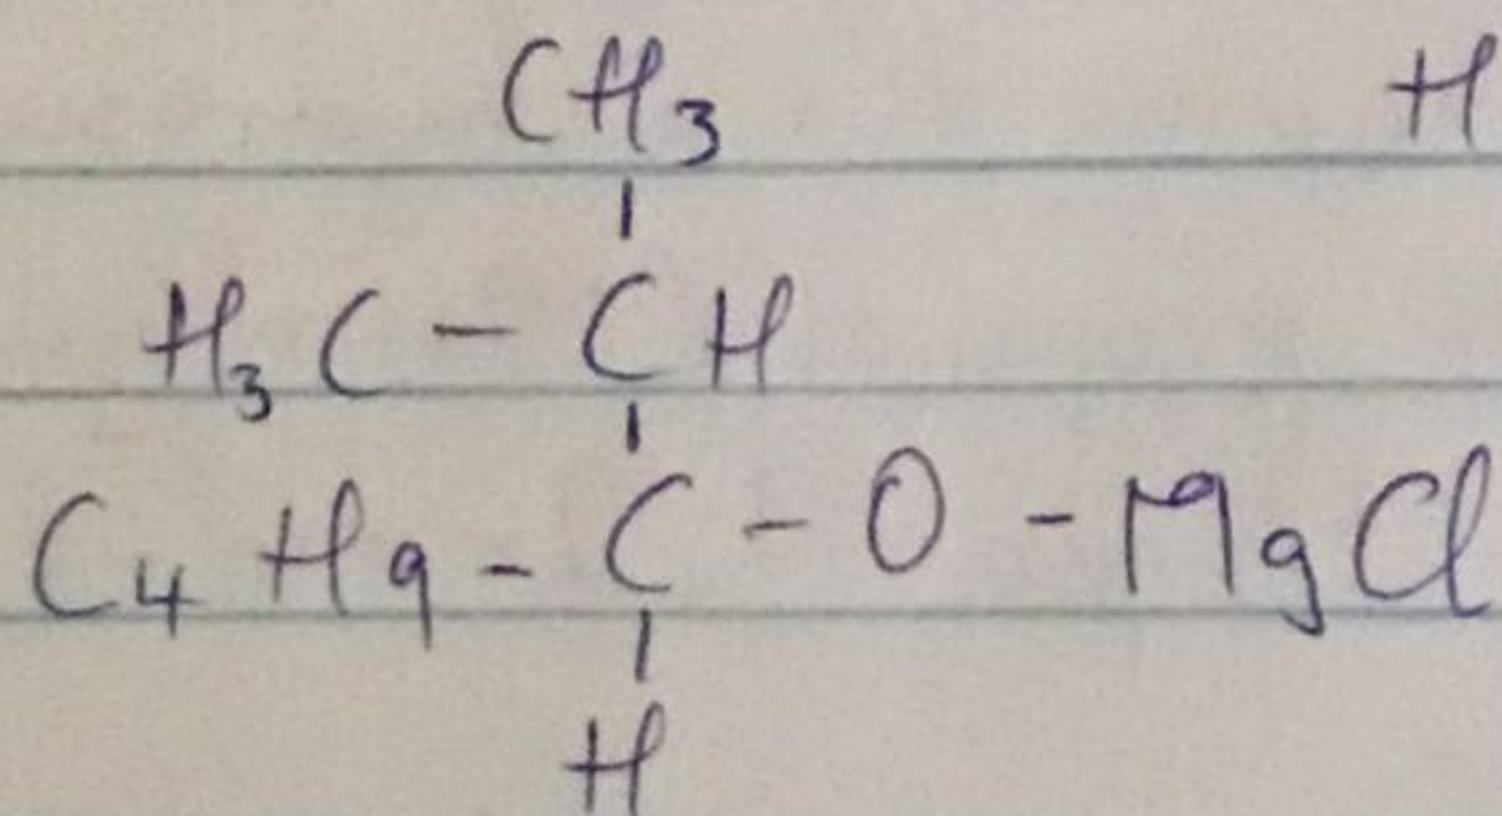 CH3 H
|
H3C - CH
|
C4H9 - C - O - MgCl
|
H